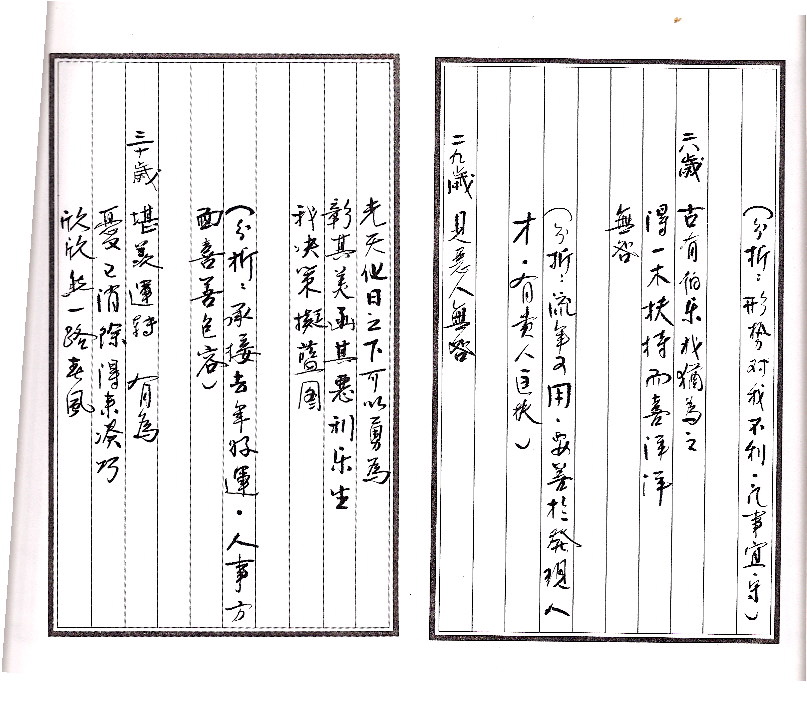 (分折:形势对我不利．凡事宜守)
六歲 古有伯乐我猶為之
得一木扶持而喜洋洋
無咎
(分折:流年可用．要善於發現人
才．有貴人匡扶)
二九歲 見惡人無咎
光天化日之下可以勇為
彰其美遏其惡利乐生
我决策擬藍图
(分折:承接去年好運．人事方
面喜善包容)
三十歲 堪羡運转 有為
憂已消除得来凑巧
欣欣然一路春風